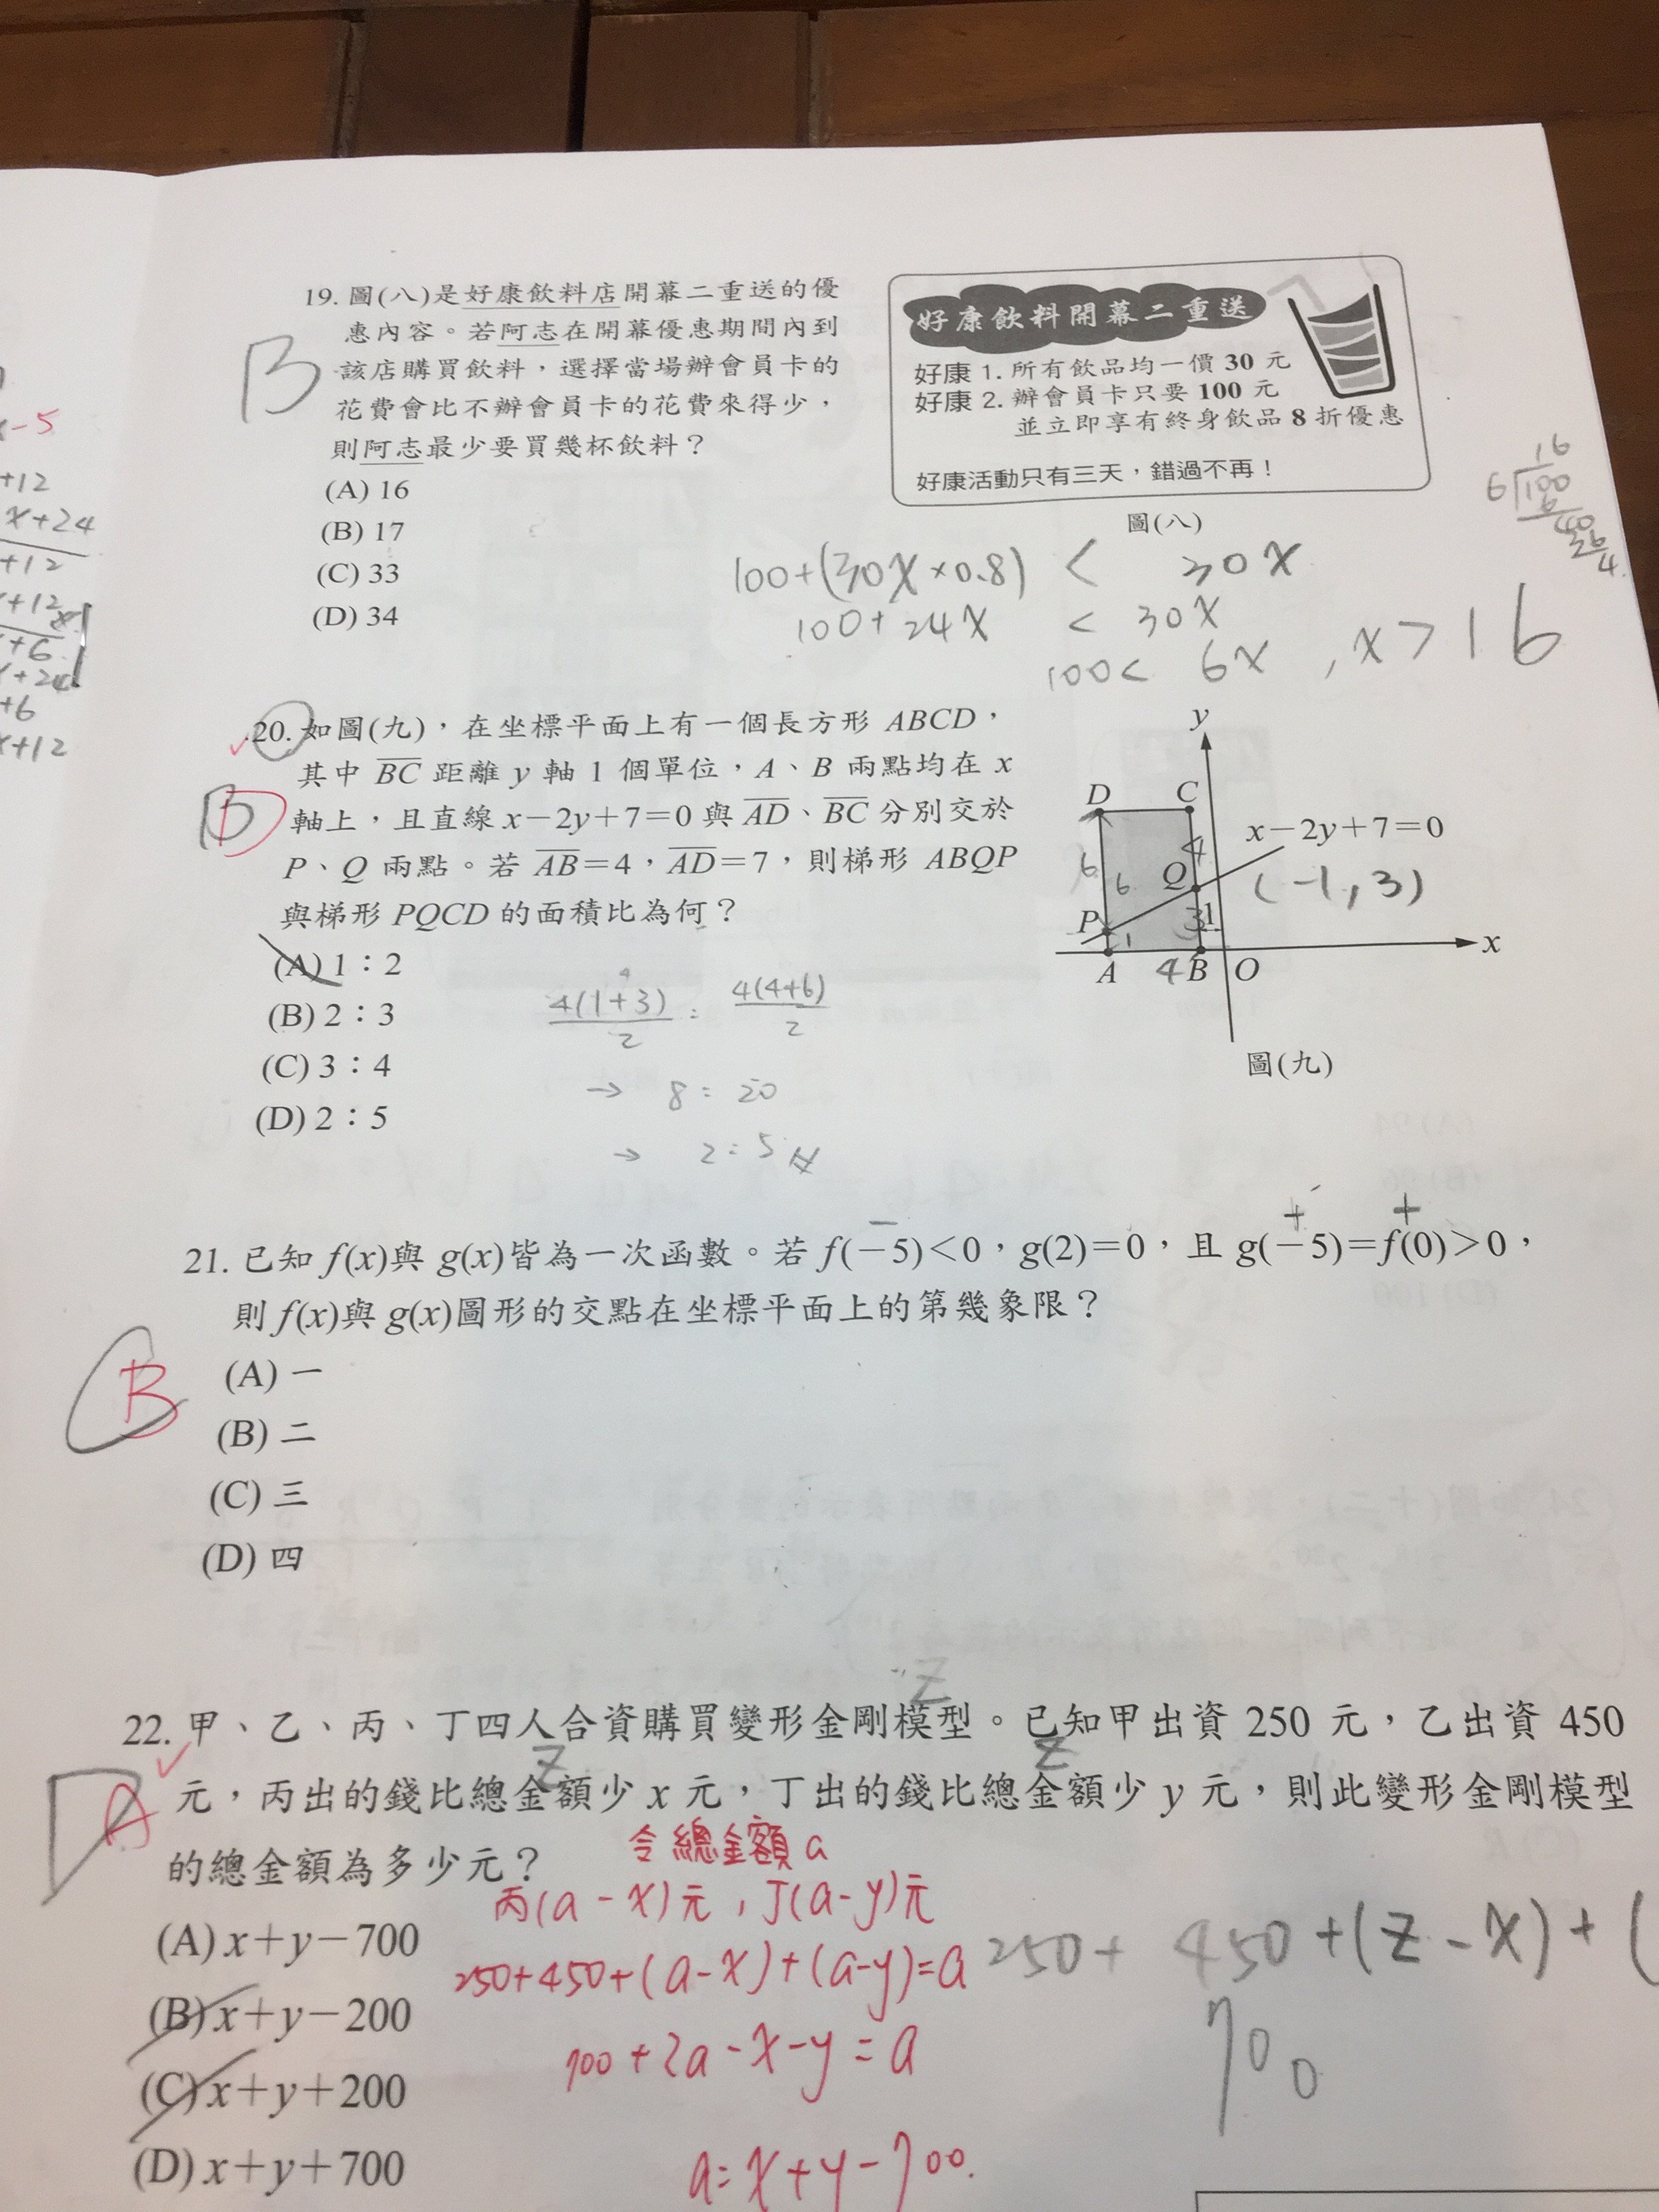 19. 圖(八)是好康飲料店開幕二重送的優
惠內容。若阿志在開幕優惠期間內到
該店購買飲料，選擇當場辦會員卡的
花費會比不辦會員卡的花費來得少，
則阿志最少要買幾杯飲料？
B
(A) 16
(B) 17
(C) 33
(D) 34
好康飲料開幕二重送
好康 1. 所有飲品均一價 30 元
好康 2. 辦會員卡只要 100 元
並立即享有終身飲品 8 折優惠
好康活動只有三天，錯過不再！
圖(八)
100+(30X×0.8) < 30X
100+24X < 30X
100< 6X , X>16
16
6 100
6
40
36
4
-5
+12
x+24
+12
+12
+6
+24
+6
x+12
20. 如圖(九)，在坐標平面上有一個長方形 ABCD，
其中 BC 距離 y 軸 1 個單位，A、B 兩點均在 x
軸上，且直線 x－2y＋7＝0 與 AD、BC 分別交於
P、Q 兩點。若 AB＝4，AD＝7，則梯形 ABQP
與梯形 PQCD 的面積比為何？
D
(A) 1：2
(B) 2：3
(C) 3：4
(D) 2：5
4(1+3)/2 : 4(4+6)/2
→ 8 : 20
→ 2 : 5
y
D C
x－2y＋7＝0
4
6 6 Q
(-1, 3)
P 1 3 1
x
A 4 B O
圖(九)
− + +
21. 已知 f(x)與 g(x)皆為一次函數。若 f(－5)<0，g(2)=0，且 g(－5)=f(0)>0，
則 f(x)與 g(x)圖形的交點在坐標平面上的第幾象限？
C B
(A) 一
(B) 二
(C) 三
(D) 四
Z
22. 甲、乙、丙、丁四人合資購買變形金剛模型。已知甲出資 250 元，乙出資 450
Z Z
元，丙出的錢比總金額少 x 元，丁出的錢比總金額少 y 元，則此變形金剛模型
的總金額為多少元？
D A
令總金額 a
丙(a-x)元，丁(a-y)元
250+450+(a-x)+(a-y)=a
700+2a-x-y=a
a=x+y-700.
250+ 450+(z-x)+(
700
(A) x＋y－700
(B) x＋y－200
(C) x＋y＋200
(D) x＋y＋700